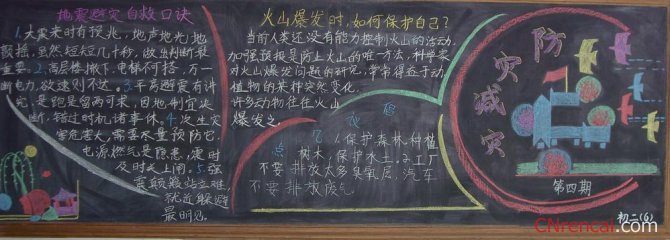 地震避灾自救口诀
1.大震来时有预兆,地声地光地
颤摇,虽然短短几十秒,做出判断最
重要.2.高层楼撤下,电梯不可搭,万一
断电力,欲速则不达.3.平房避震有讲
究,是跑是留两可求,因地制宜决
断,错过时机诸事休.4.次生灾
害危害大,需要尽量预防它,
电源燃气是隐患,震时
及时关上闸.5.强
震颠簸站立难,
就近躲避
最明见.
火山爆发时,如何保护自己?
当前人类还没有能力控制火山的活动,
加强预报是防止火山的唯一方法,科学家
对火山爆发问题的研究,常常得益于动
植物的某种突然变化.
许多动物往往火山
爆发之
1.保护森林,种植
树木,保护水土.2.工厂
不要排放太多臭氧层,汽车
不要排放废气
防
灾
减
灾
第四期
初二(6)
CNrencai.com